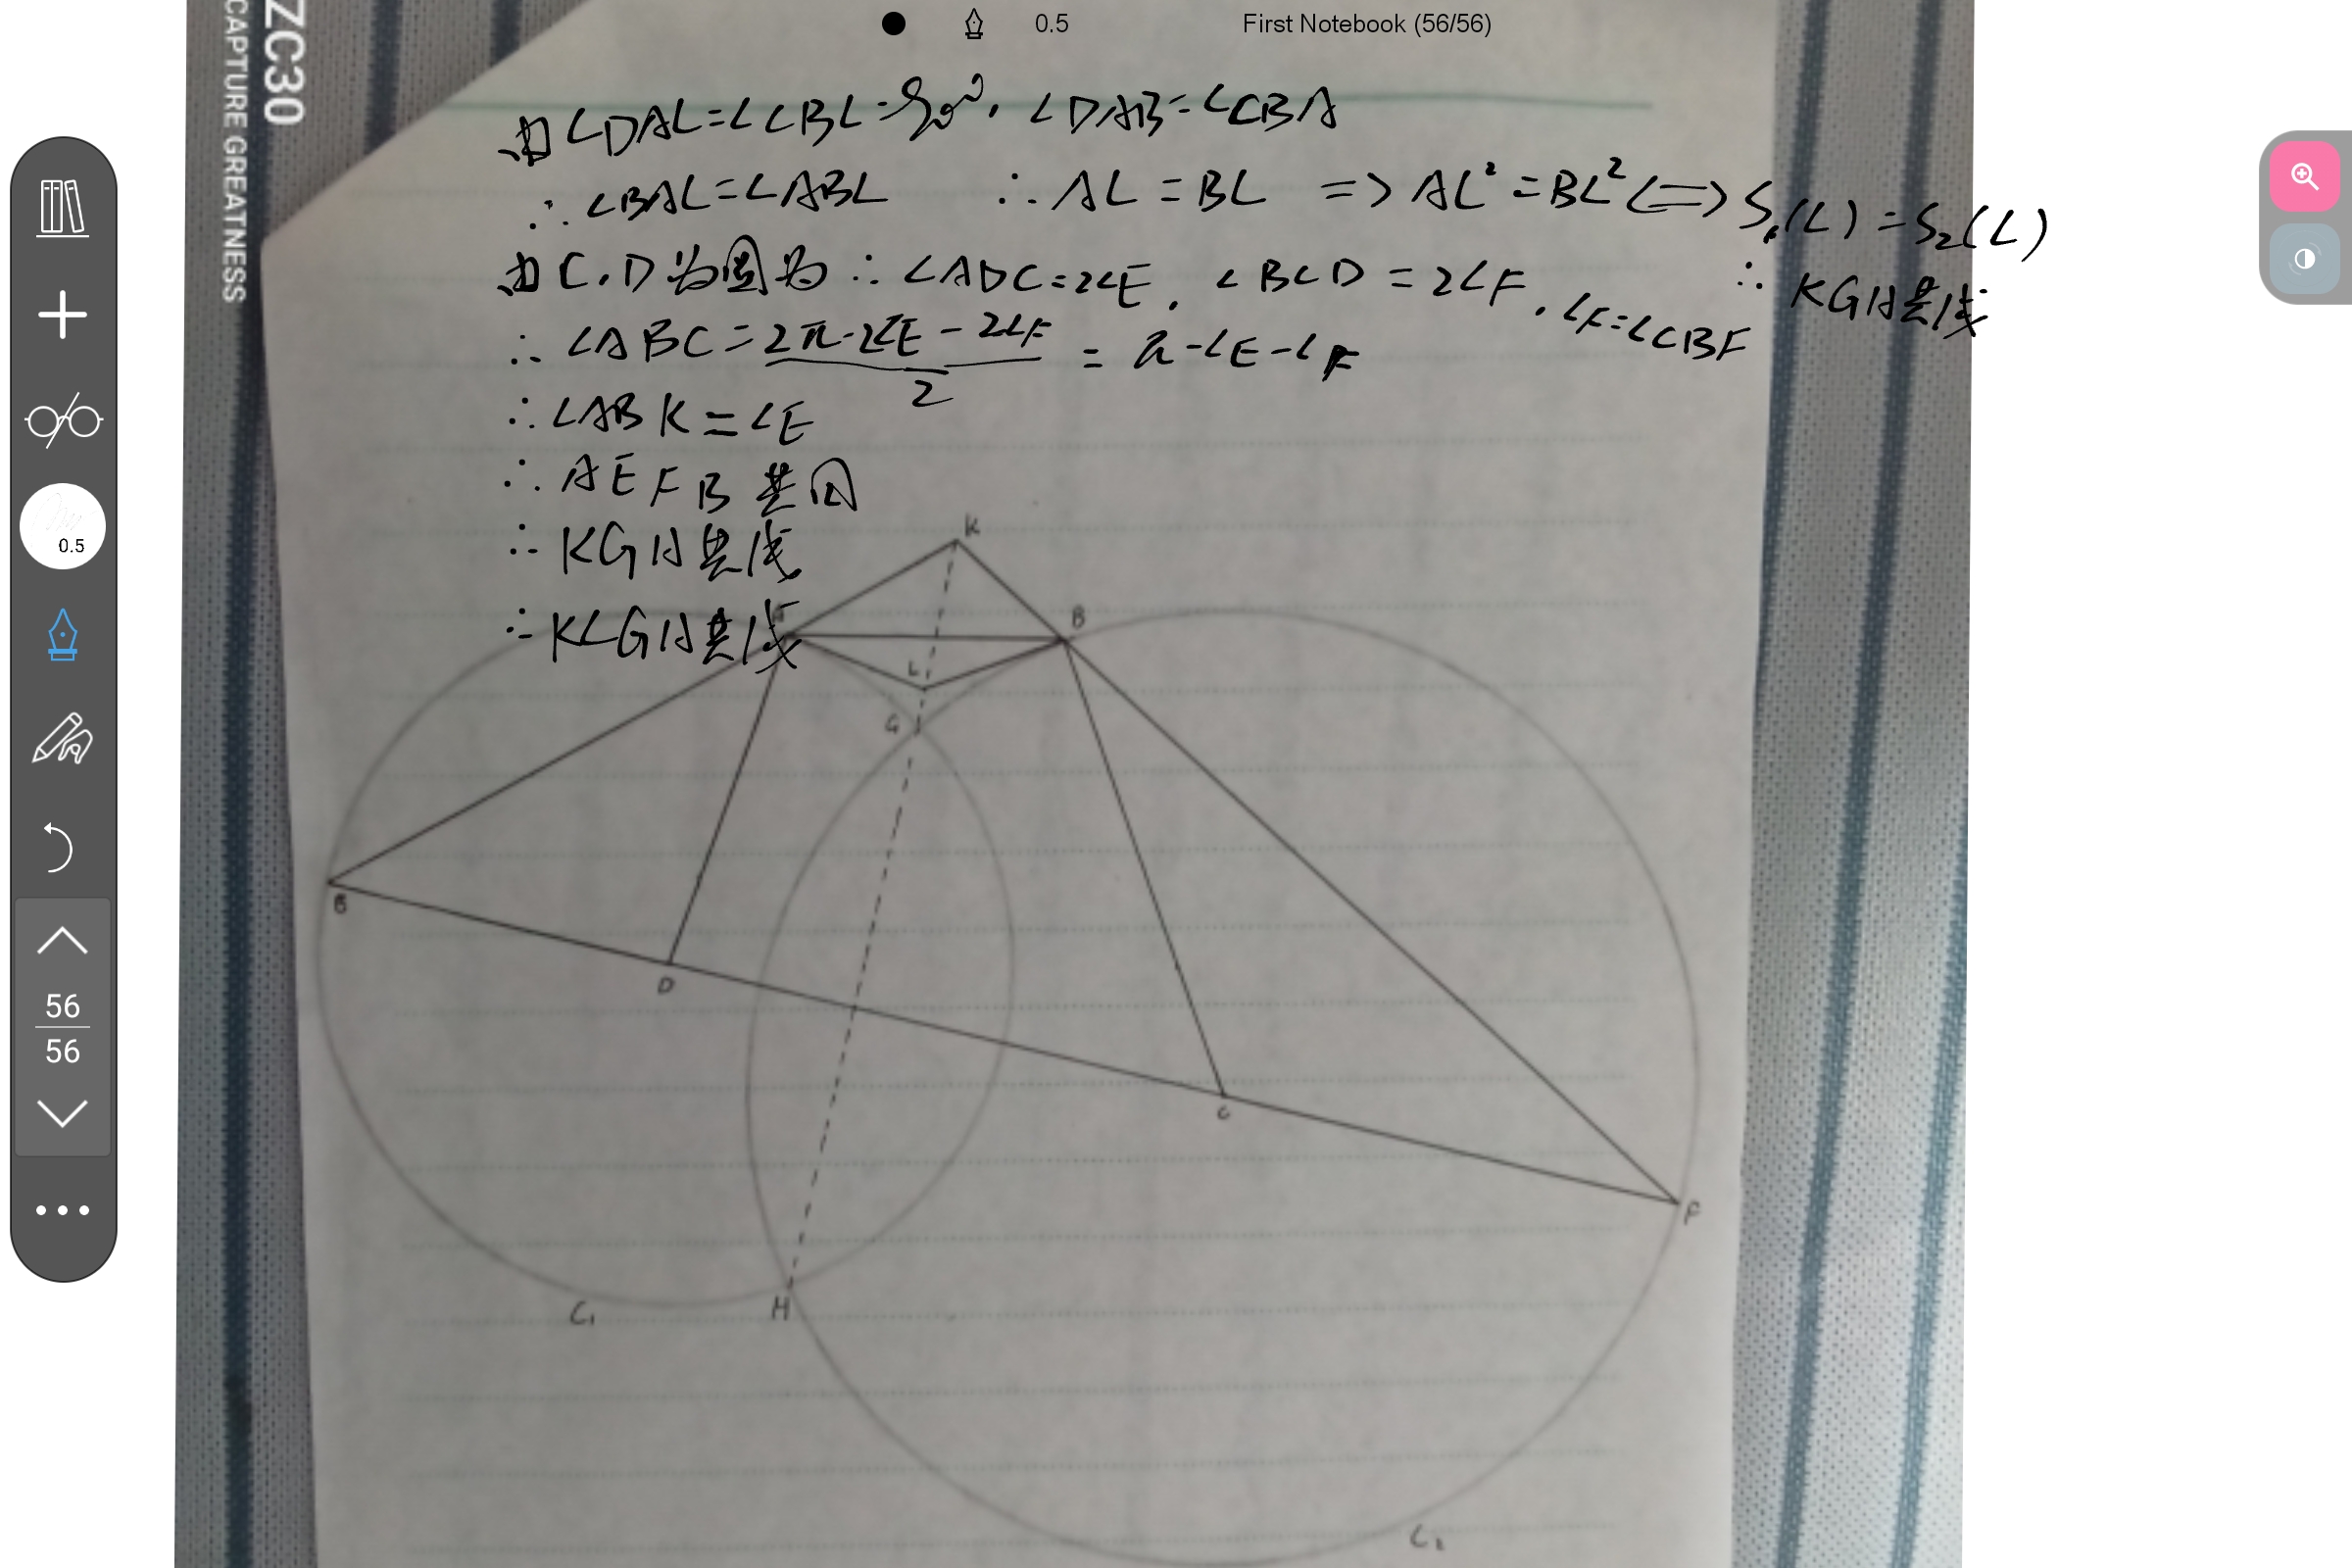 First Notebook (56/56)
0.5
ZC30
CAPTURE GREATNESS
由∠DAL=∠CBL=90°, ∠DAB=∠CBA
∴∠BAL=∠ABL ∴AL=BL => AL²=BL² <=> S₁(L)=S₂(L)
∴ KGH共线
由C.D为圆为∴∠ADC=2∠E, ∠BCD=2∠F, ∠F=∠CBF
∴∠ABC=(2π-2∠E-2∠F)/2=π-∠E-∠F
∴∠ABK=∠E
∴AEFB共圆
∴KGH共线
∴KLGH共线
0.5
K
A
B
L
G
E
D
C
F
H
C₁
C₂
56
56